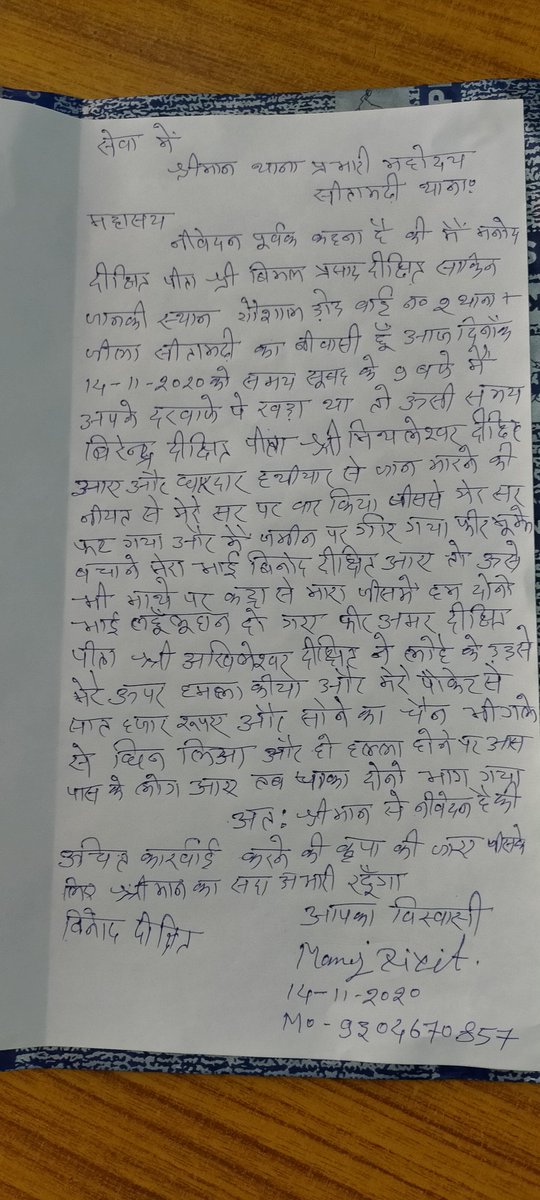 सेवा में
श्रीमान थाना प्रभारी महोदय
सीतामढी थाना०
महासय
नीवेदन पूर्वक कहना है की मैं मनोद
दीक्षित पीता श्री बिमल प्रसाद दीक्षित साकिन
जानकी स्थान रोड वार्ड न० २ थाना +
जीला सीतामढी का नीवासी हूँ आज दिनाँक
14-11-2020 को समय सूबह के 9 बजे मैं
अपने दरवाजे पे खड़ा था तो ऊसी समय
बिरेन्द्र दीक्षित पीता श्री दीक्षित
आए और धारदार हथीयार से जान मारने की
नीयत से मेरे सर पर वार किया जीससे मेर सर
फट गया और मैं जमीन पर गीर गया फीर मूझे
बचाने मेरा भाई बिनोद दीक्षित आए तो ऊसे
भी माथे पर कट्टा से मारा जीसमें हम दोनो
भाई लहूँलूहान हो गए फीर अमर दीक्षित
पीता श्री अखिलेश्वर दीक्षित ने लोहे के
मेरे ऊपर हमला कीया और मेरे पौकेट से
सात हजार रूपए और सोने का चैन भी गले
से छिन लिआ और हो हल्ला होने पर आस
पास के लोग आए तब दोनो भाग गया
अतः श्रीमान से नीवेदन है की
ऊचित कारवाई करने की कृपा की जाए जीसके
लिए श्रीमान का सदा अभारी रहूँगा
आपका विस्वासी
बिनोद दीक्षित
Manoj Dixit.
14-11-2020
Mo - 9304670857